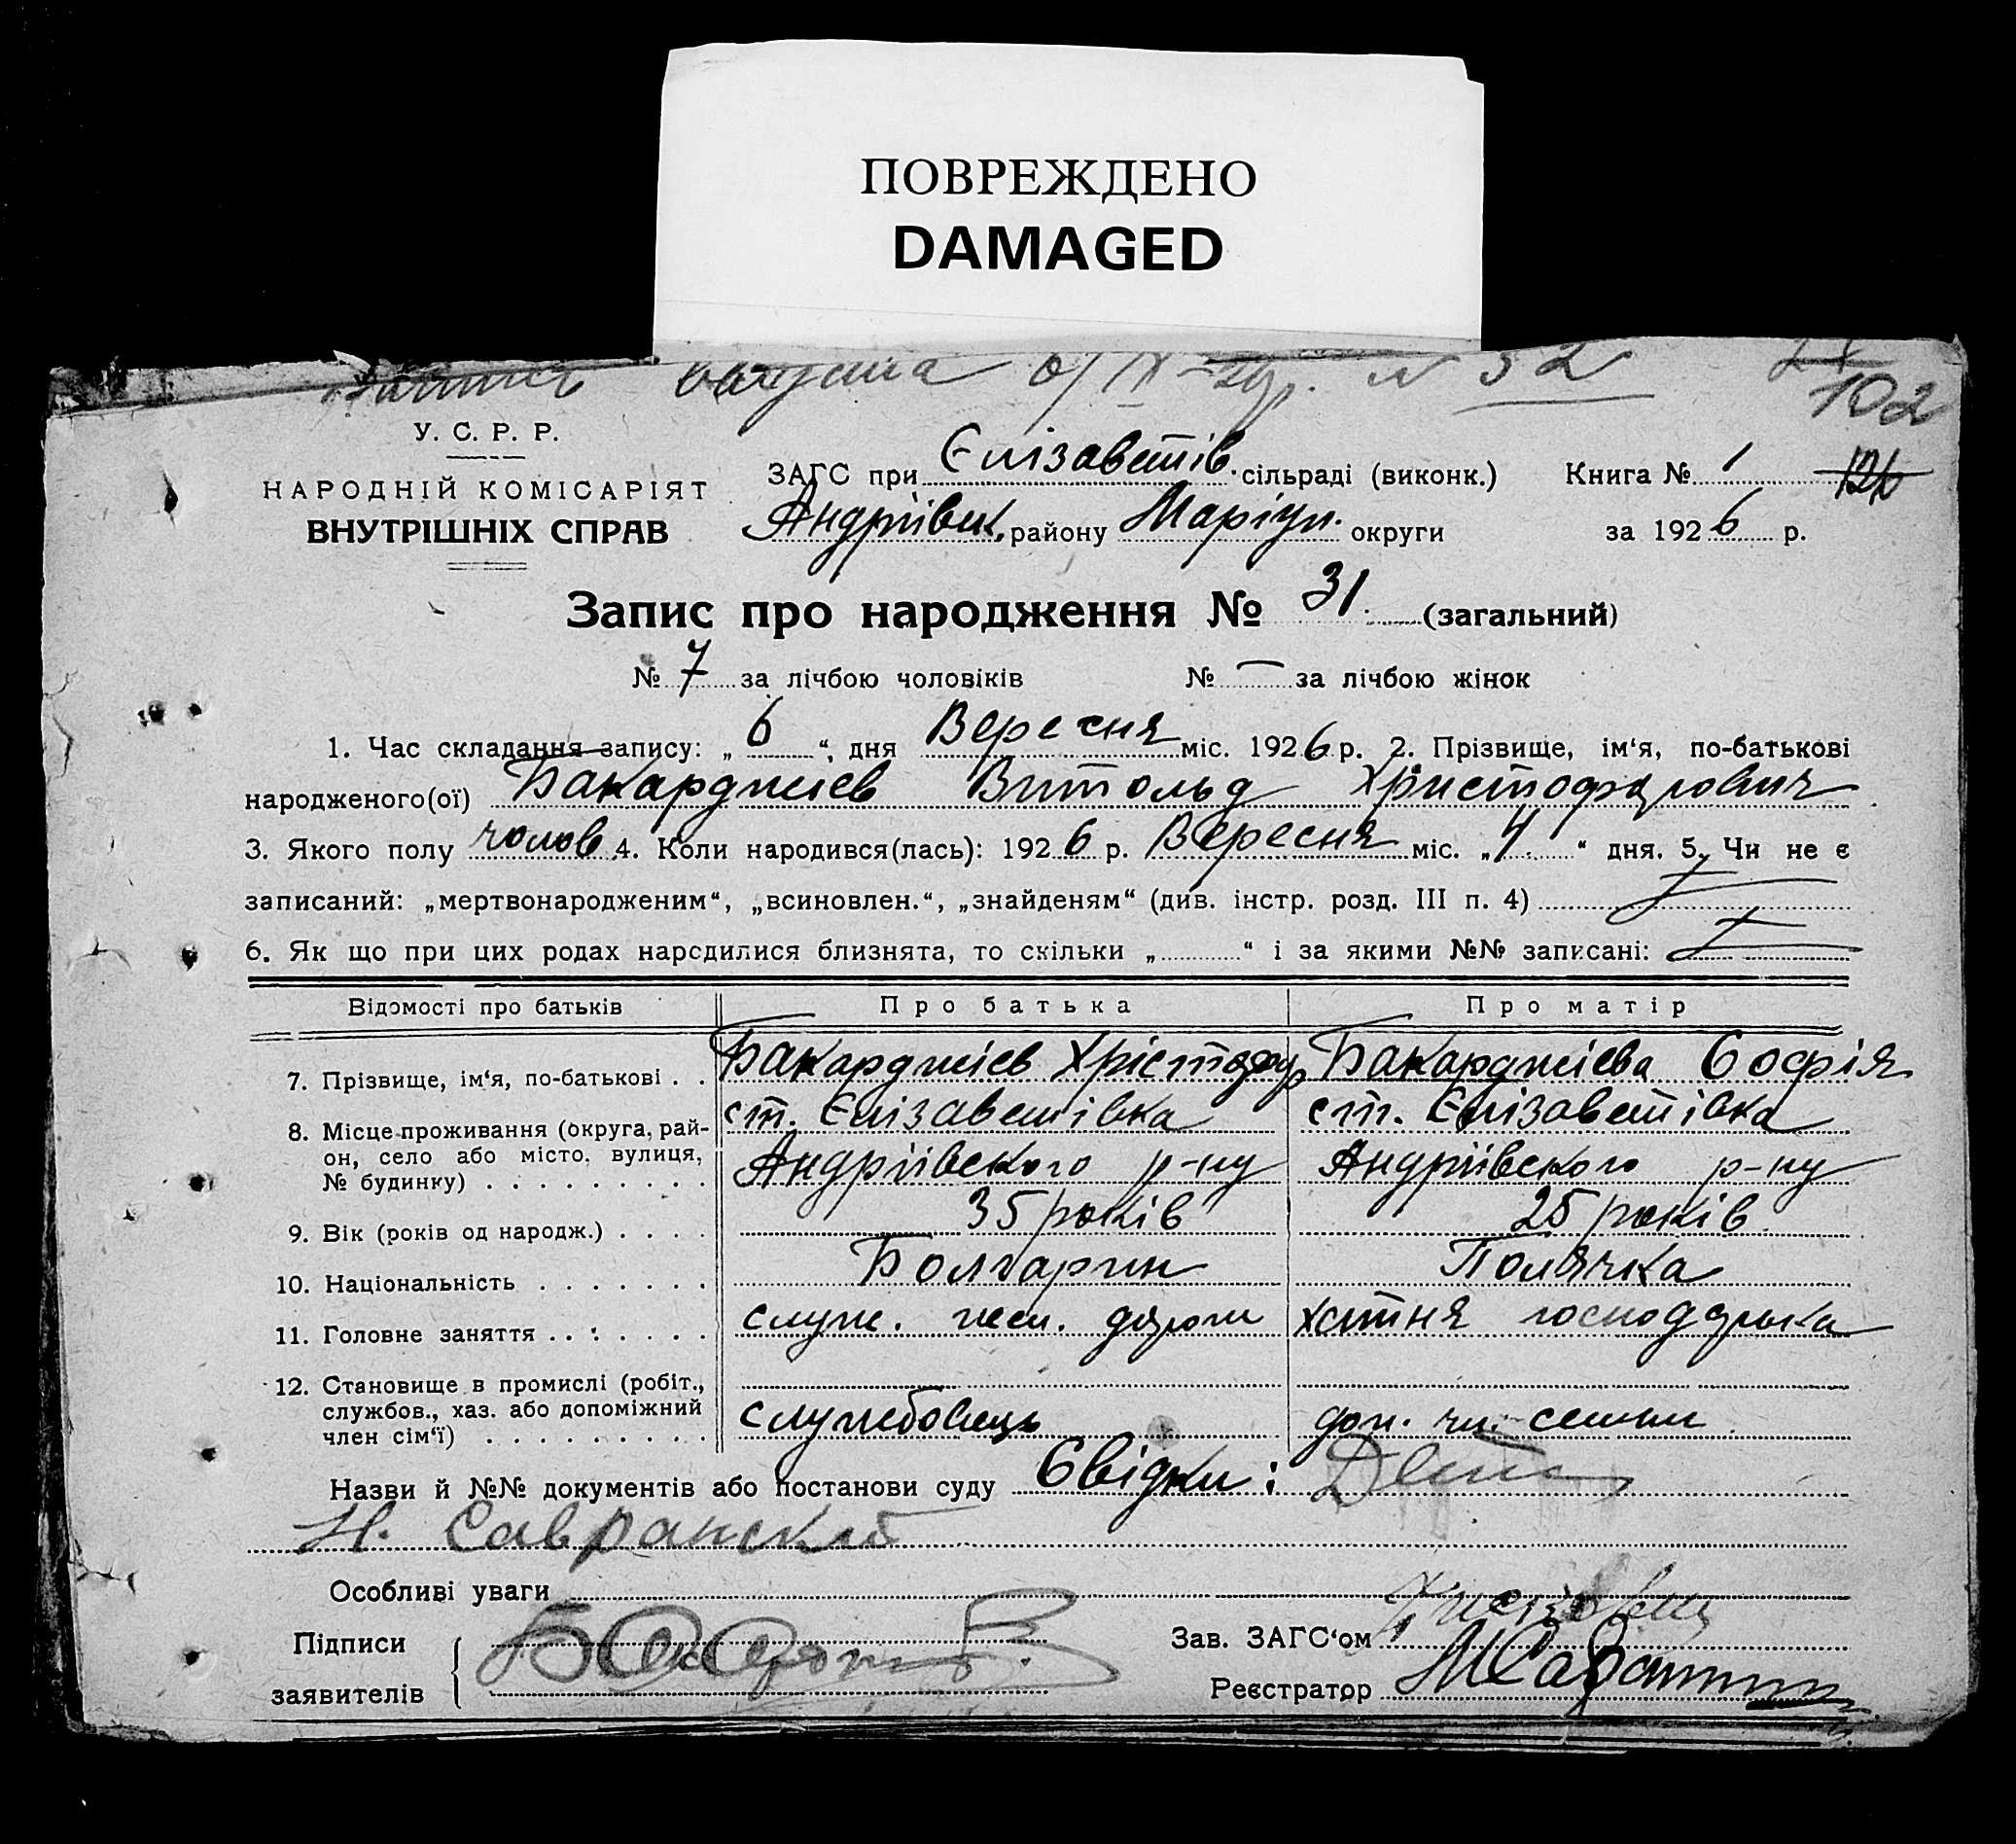 ПОВРЕЖДЕНО
DAMAGED
видана № 32
102
У. С. Р. Р.
НАРОДНІЙ КОМІСАРІЯТ
ВНУТРІШНІХ СПРАВ
ЗАГС при Єлізаветів. сільраді (виконк.) Книга № 1
Андріївск. району Маріуп. округи за 1926 р.
Запис про народження № 31. (загальний)
№ 7 за лічбою чоловіків № — за лічбою жінок
1. Час складання запису: „6“ дня Вересня міс. 1926 р. 2. Прізвище, ім‘я, по-батькові
народженого(ої) Бакарджиев Витольд Христофорович
3. Якого полу чолов 4. Коли народився(лась): 1926 р. Вересня міс. „4“ дня. 5. Чи не є
записаний: „мертвонародженим“, „всиновлен.“, „знайденям“ (див. інстр. розд. III п. 4)
6. Як що при цих родах народилися близнята, то скільки „ “ і за якими №№ записані:
Відомості про батьків Про батька Про матір
7. Прізвище, ім‘я, по-батькові . . Бакарджіев Хрістофор Бакарджіева Софія
8. Місце проживання (округа, рай- ст. Єлізаветівка ст. Єлізаветівка
он, село або місто, вулиця, Андріівского р-ну Андріівского р-ну
№ будинку) . . . . . . . . .
9. Вік (років од народж.) . . . . 35 років 25 років
10. Національність . . . . . . . Болгарин Полячка
11. Головне заняття . . . . . . . служ. жел. дороги хатня господарька
12. Становище в промислі (робіт.,
службов., хаз. або допоміжний службовець доп. чл. семьи
член сім‘ї) . . . . . . . . .
Назви й №№ документів або постанови суду Свідки:
Н. Савранский
Особливі уваги
Підписи Зав. ЗАГС‘ом
заявителів Реєстратор